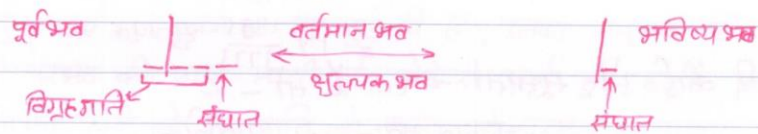 पूर्व भव वर्तमान भव भविष्य भव
क्षुल्लक भव
विग्रहगति संघात संघात